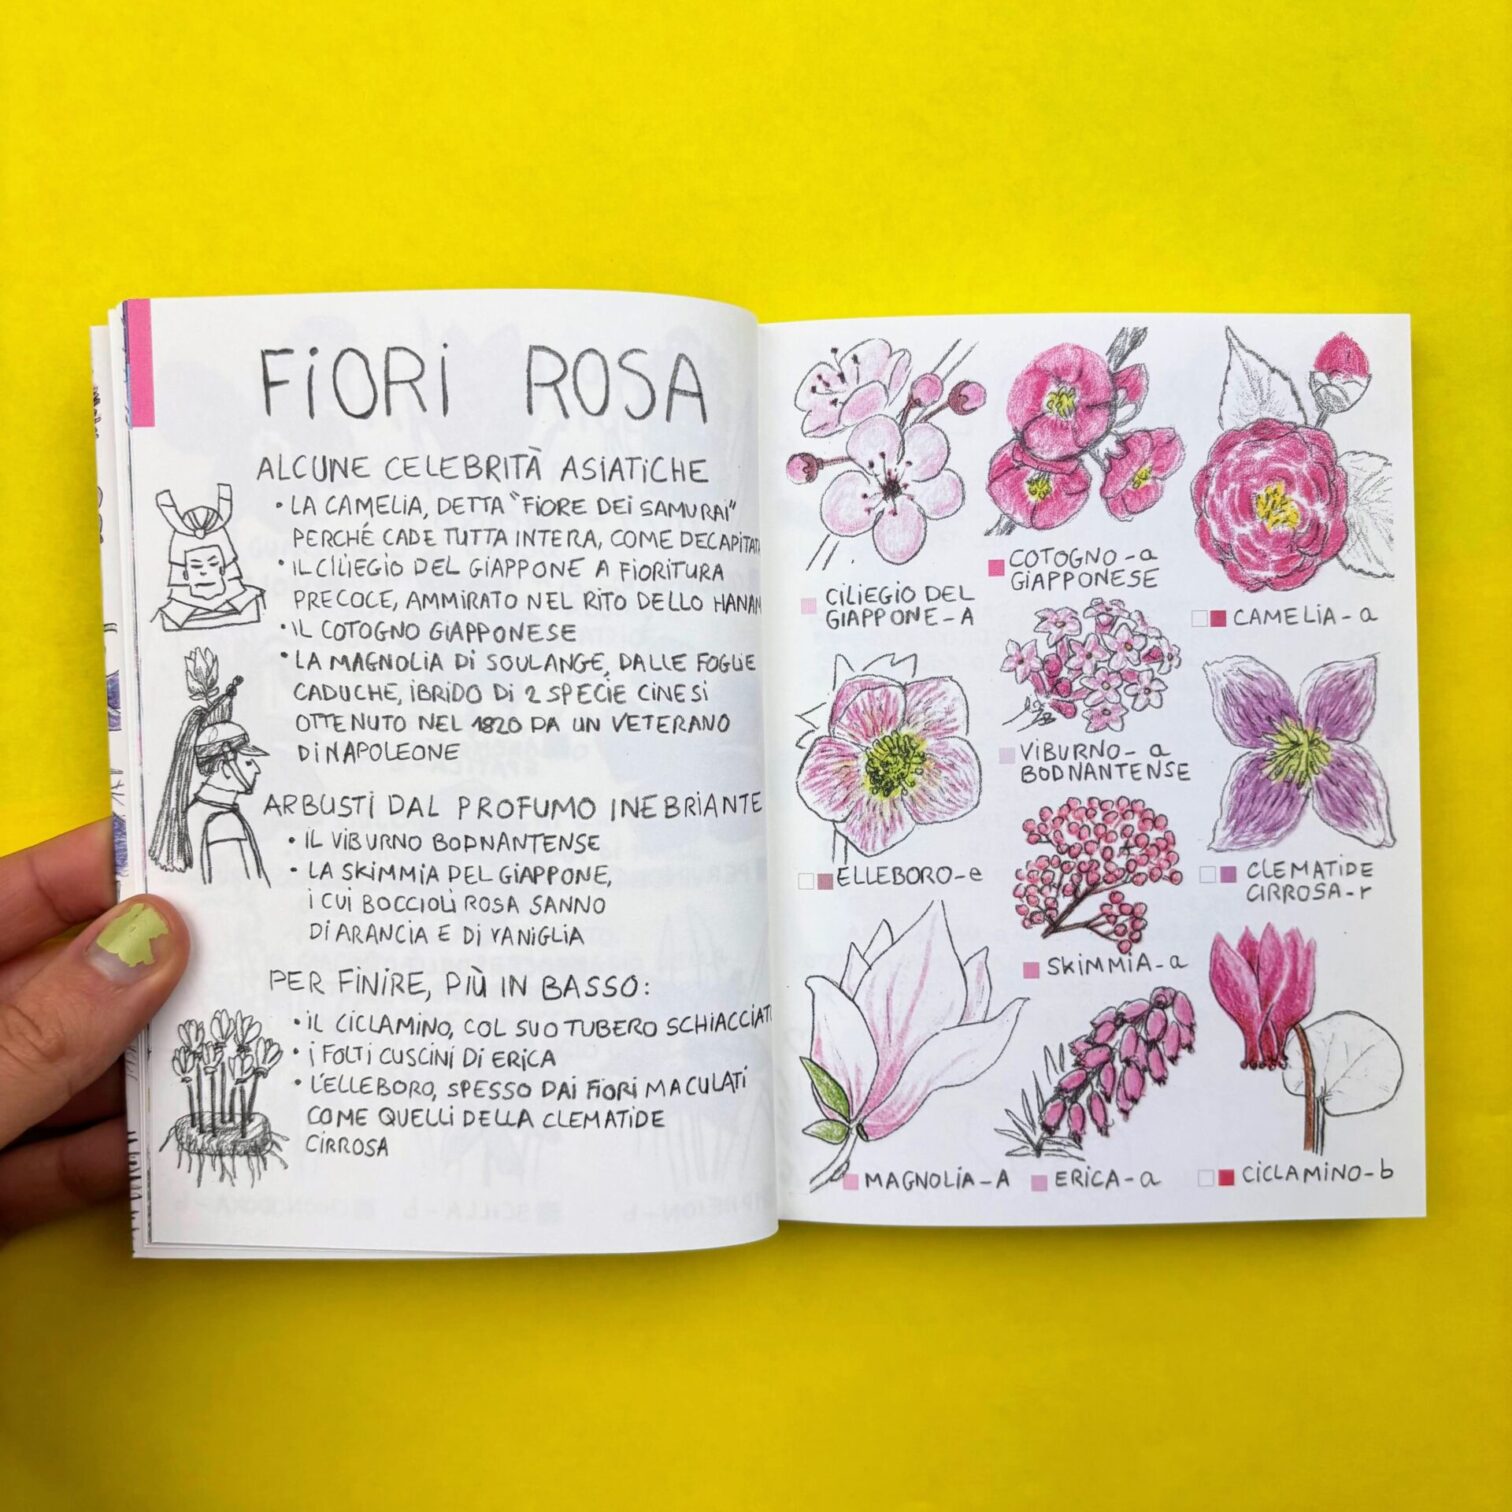 FIORI ROSA
ALCUNE CELEBRITÀ ASIATICHE
• LA CAMELIA, DETTA "FIORE DEI SAMURAI"
PERCHÉ CADE TUTTA INTERA, COME DECAPITATA
• IL CILIEGIO DEL GIAPPONE A FIORITURA
PRECOCE, AMMIRATO NEL RITO DELLO HANAMI
• IL COTOGNO GIAPPONESE
• LA MAGNOLIA DI SOULANGE, DALLE FOGLIE
CADUCHE, IBRIDO DI 2 SPECIE CINESI
OTTENUTO NEL 1820 DA UN VETERANO
DI NAPOLEONE
ARBUSTI DAL PROFUMO INEBRIANTE
• IL VIBURNO BODNANTENSE
• LA SKIMMIA DEL GIAPPONE,
I CUI BOCCIOLI ROSA SANNO
DI ARANCIA E DI VANIGLIA
PER FINIRE, PIÙ IN BASSO:
• IL CICLAMINO, COL SUO TUBERO SCHIACCIATO
• I FOLTI CUSCINI DI ERICA
• L'ELLEBORO, SPESSO DAI FIORI MACULATI
COME QUELLI DELLA CLEMATIDE
CIRROSA
CILIEGIO DEL
GIAPPONE-A
COTOGNO-a
GIAPPONESE
CAMELIA-a
VIBURNO-a
BODNANTENSE
ELLEBORO-e
CLEMATIDE
CIRROSA-r
SKIMMIA-a
MAGNOLIA-A
ERICA-a
CICLAMINO-b